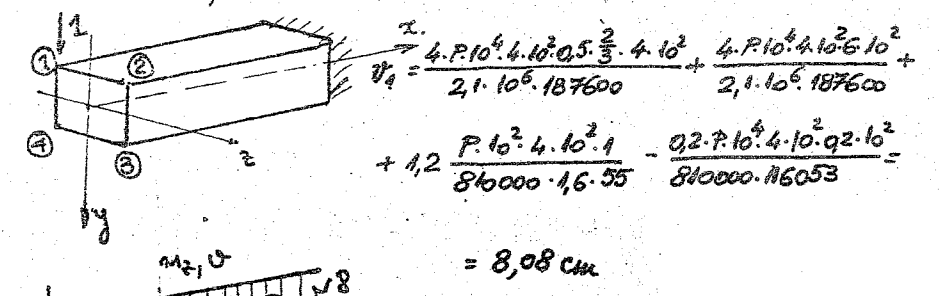 1
x
① ②
v₁ = 4·P·10⁴·4·10²·0,5·2/3·4·10² / 2,1·10⁶·187600 + 4·P·10⁴·4·10²·6·10² / 2,1·10⁶·187600 +
④ ③ z
+ 1,2 P·10²·4·10²·1 / 810000·1,6·55 - 0,2·P·10⁴·4·10²·0,2·10² / 810000·116053 =
y
= 8,08 cm
m_z, v
8